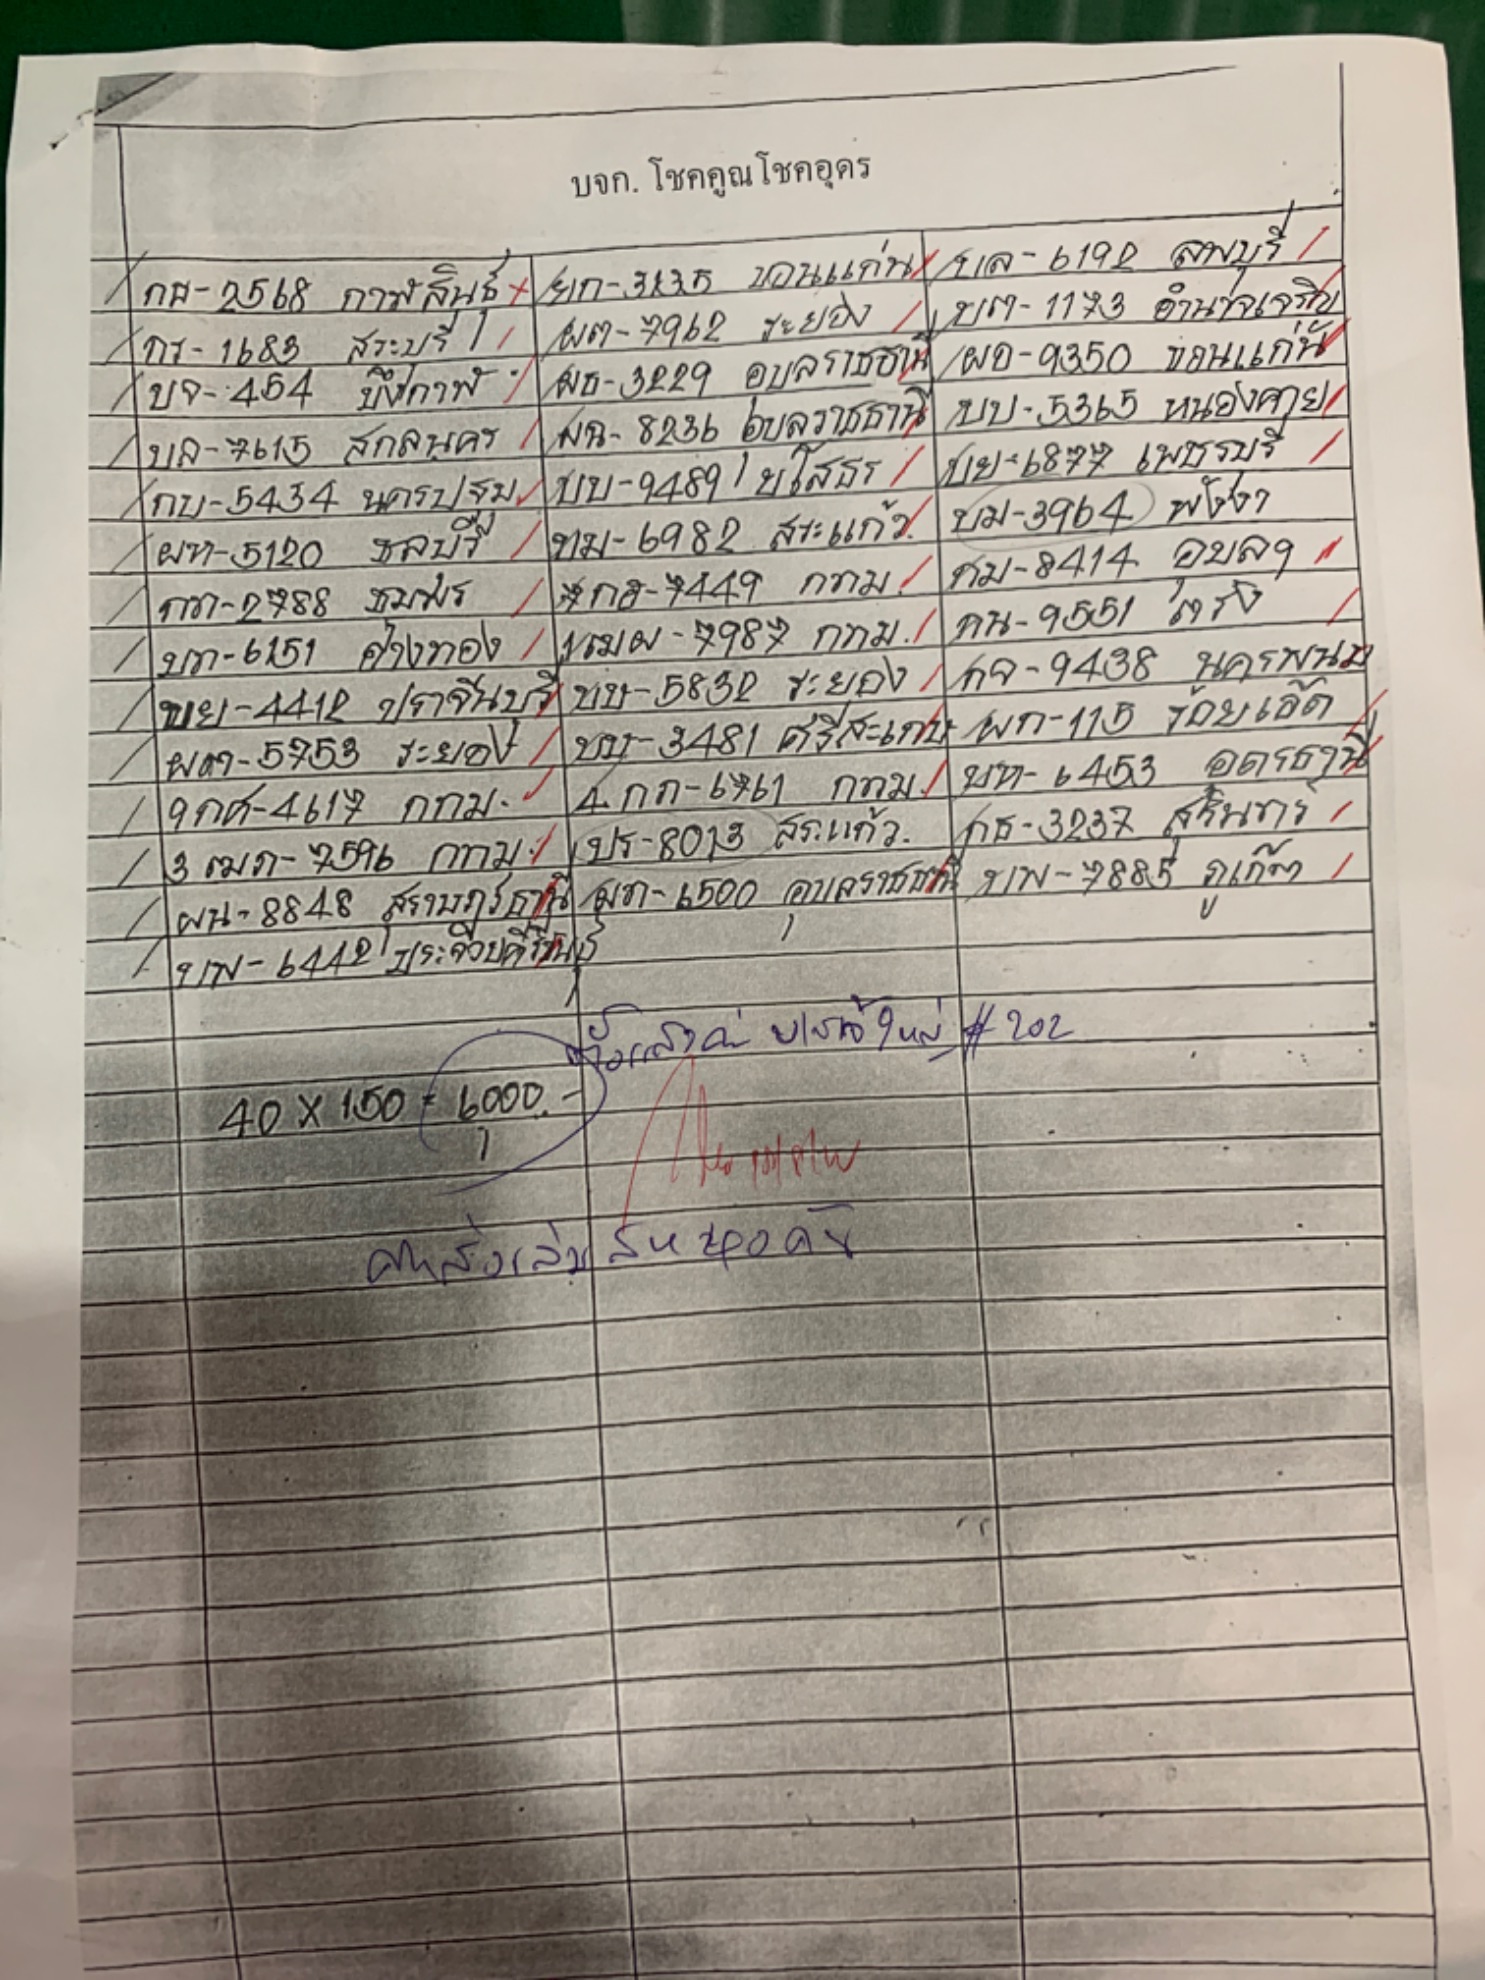 บจก. โชคคูณโชคอุดร
กส-2568 กาฬสินธุ์ ยก-3235 ขอนแก่น บล-6192 ลพบุรี
กร-1683 สระบุรี ผต-7962 ระยอง บต-1173 อำนาจเจริญ
บจ-454 บึงกาฬ ผธ-3229 อุบลราชธานี ผอ-9350 ขอนแก่น
บล-7615 สกลนคร ผฉ-8236 อุบลราชธานี บบ-5365 หนองคาย
กบ-5434 นครปฐม บบ-9489 ยโสธร บย-6877 เพชรบุรี
ผท-5120 ชลบุรี บม-6982 สระแก้ว บม-3964 พังงา
กต-2788 ชุมพร 7กฮ-7449 กทม. กม-8414 อุบลฯ
บท-6151 อ่างทอง 1ฒผ-7987 กทม. กน-9551 ตรัง
บย-4412 ปราจีนบุรี บบ-5832 ระยอง กจ-9438 นครพนม
ผต-5753 ระยอง บบ-3481 ศรีสะเกษ ผก-115 ร้อยเอ็ด
9กศ-4617 กทม. 4กภ-6761 กทม. บท-6453 อุดรธานี
3ฒภ-7596 กทม. ปร-8013 สระแก้ว กธ-3237 สุรินทร์
ผน-8848 สุราษฎร์ธานี ผก-6500 อุบลราชธานี บพ-7885 ภูเก็ต
บพ-6442 ประจวบคีรีขันธ์
ใหญ่ #202
40 X 150 = 6000.-